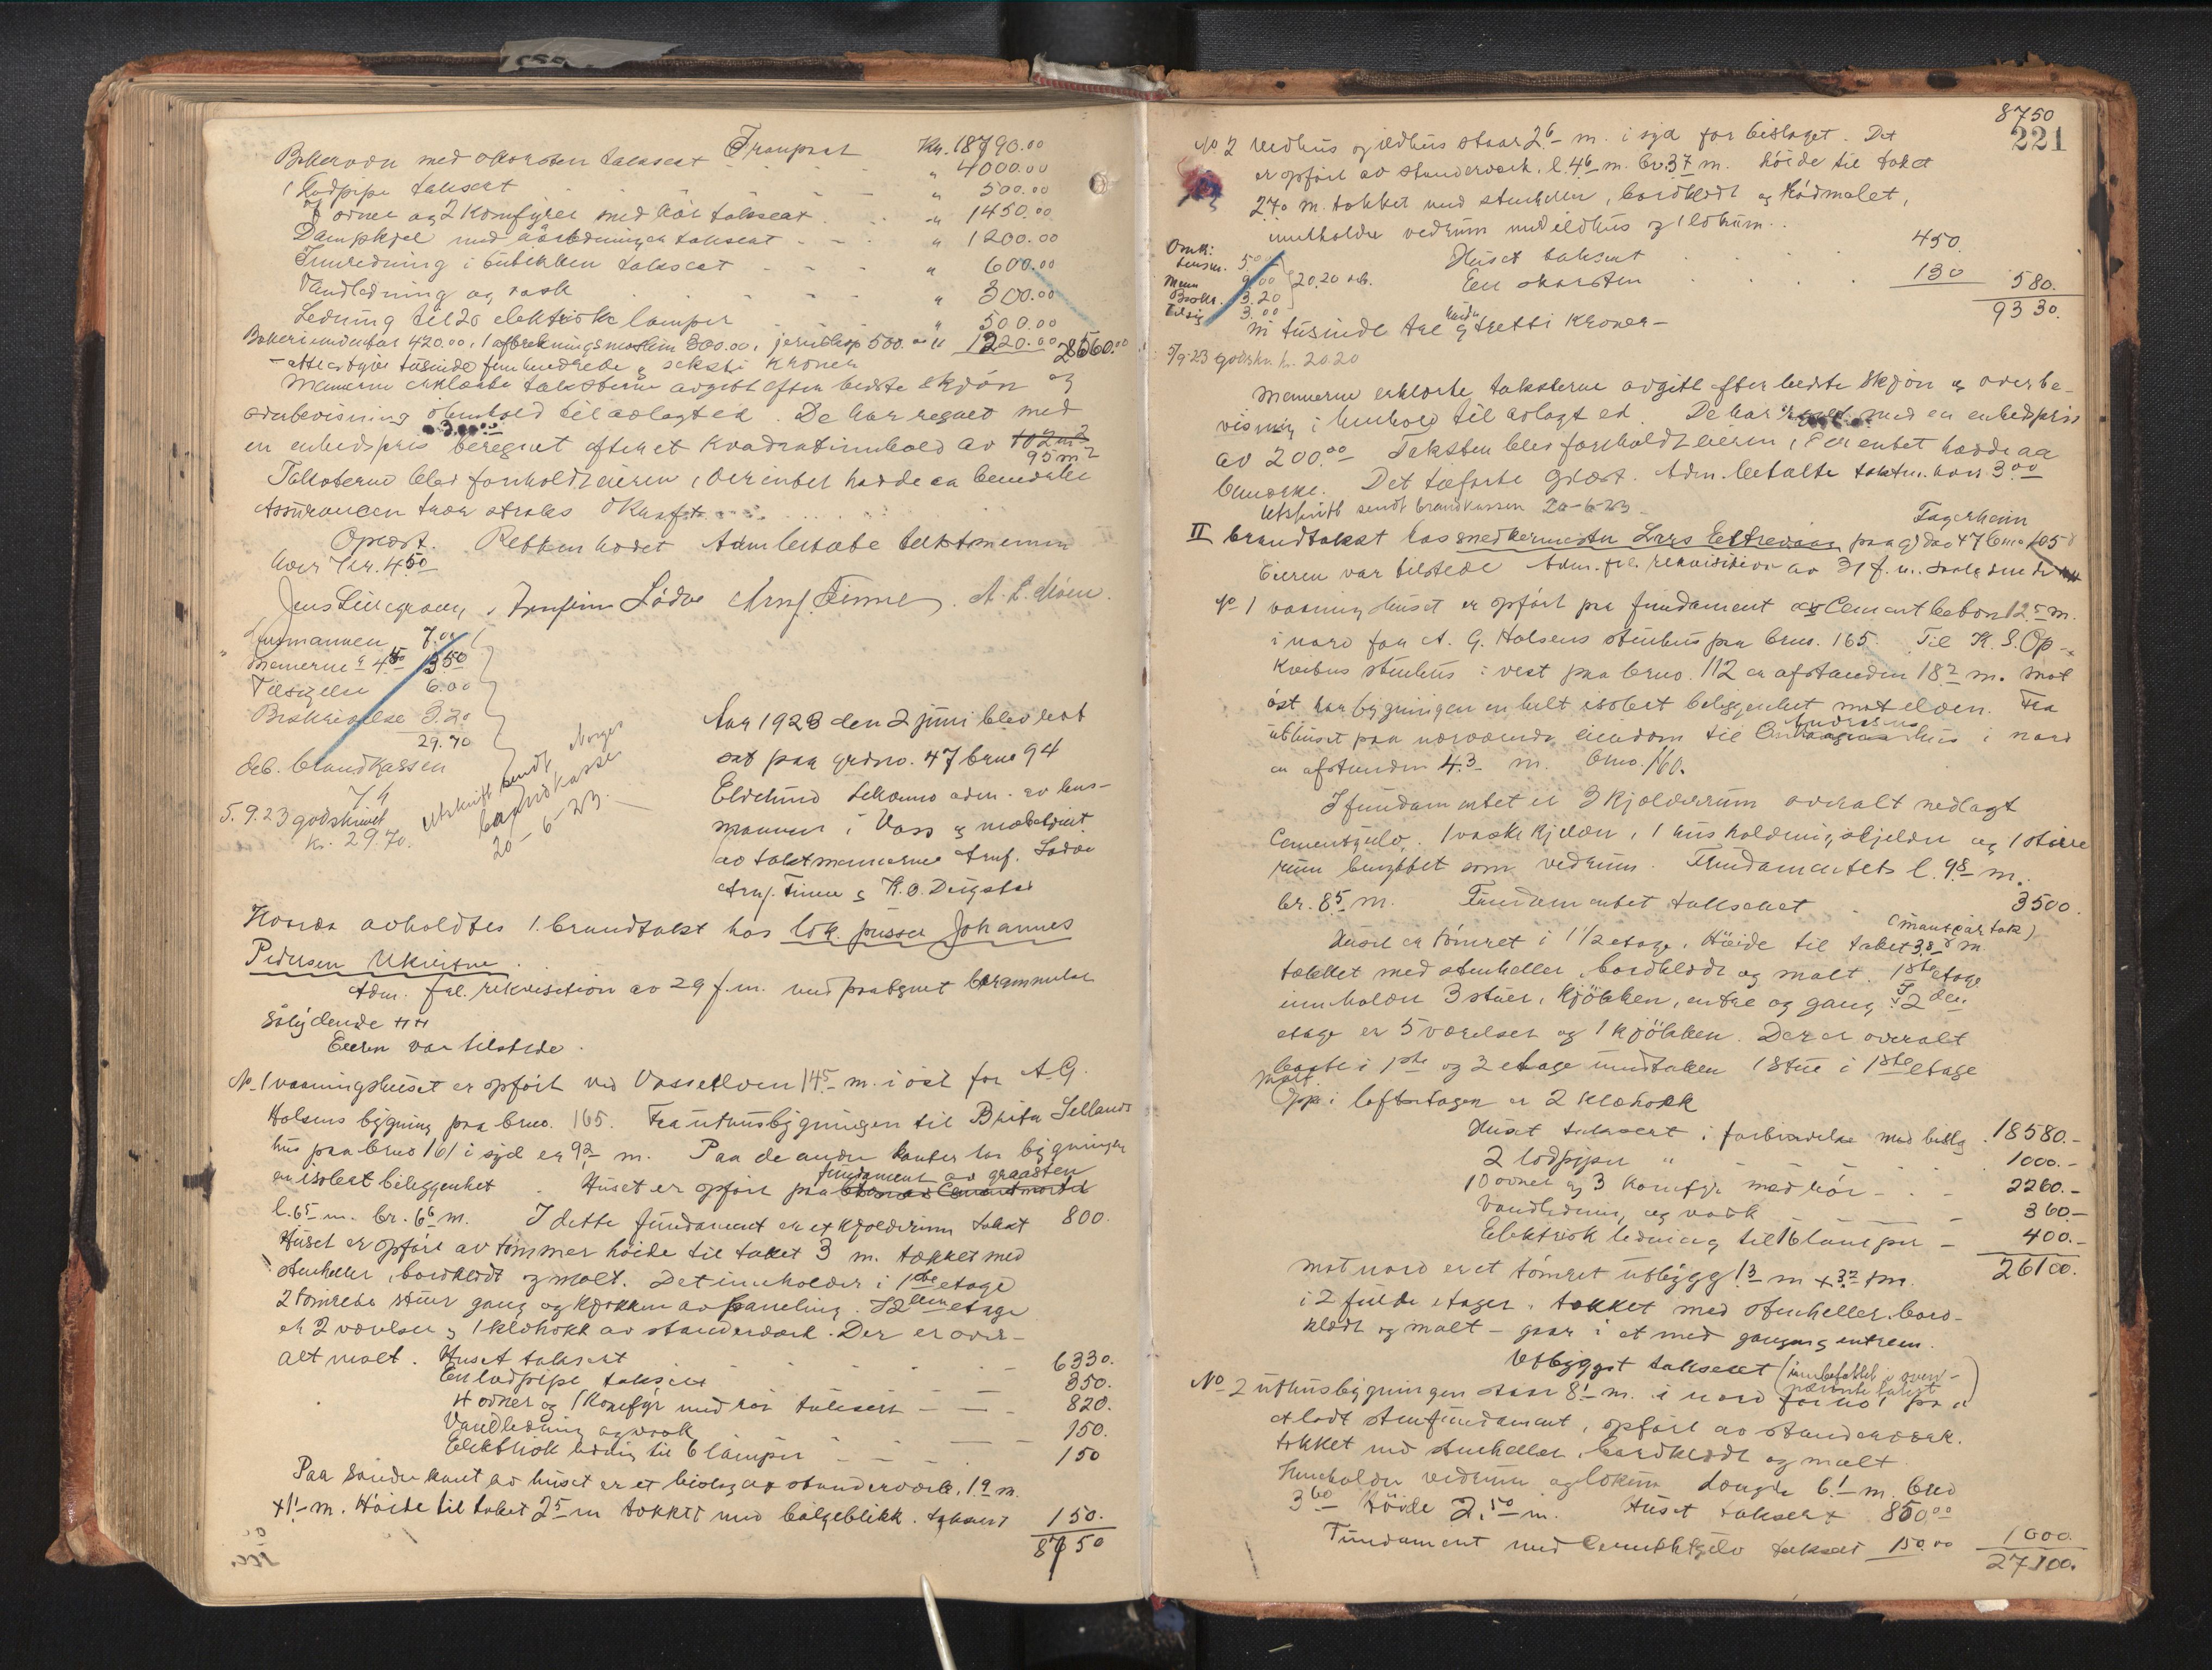 Transport Kr. 18790.00
Bakerovn med skorsten taksert " 4000.00
1 Lodpipe taksert " 500.00
7 ovner og 2 komfyrer med rör taksert " 1450.00
Dampkjel med rörledninger taksert " 1200.00
Innredning i butikken taksert " 600.00
Vandledning og vask " 300.00
Ledning til 20 elektriske lamper " 500.00
Bakeriinventar 420.00, 1 300.00, 500.00 " 1220.00 28560.00
- otte og tyve tusinde fem hundrede og seksti kroner
Mænnerne erklærte taksterne avgit efter bedste skjön og
overbevisning i henhold til avlagt ed. De har regnet med
en enhedspris beregnet efter et kvadratinnhold av 102 m2
95 m2
Taksterne blev forholdt eieren, der intet hadde at bemerke
Assurancen trær straks i kraft
Oplæst. Retten hævet Adm. betalte takstmennene
hver kr. 4.50
Jens Lillegraven, Arnfinn Lödve Arnf. Finne. A. L. Moen.
Lensmannen 7.00
Mænnerne a 4.50 13.50
Tilsigelse 6.00
Beskrivelse 3.20
29.70
Deb. brandkassen
74
5.9.23 godskrivet
kr. 29.70.
Utskrift sendt Norges
brandkasse
20-6-23.
Aar 1923 den 2 juni blev ret
sat paa grdno. 47 brno 94
Eldelund Lekanno adm. av lens-
mannen i Voss og med betjent
av takstmænnerne Arnf. Lödve
Arnf. Finne og K. O. Dugstad
Hvorda avholdtes 1. brandtakst hos lok. pusser Johannes
Pedersen Ukvitne.
Adm. frl. rekvisition av 29 f.m. med paategnet berammelse
sålydende ++
Eieren var tilstede.
No. 1 vaaningshuset er opfört ved Vosselven 14.5 m. i öst for A. G.
Holsens bygning paa brno. 165. Fra uthusbygningen til Brita Sellands
hus paa brno 161 i syd er 9.2 m. Paa de andre kanter har bygningen
en isolert beliggenhet. Huset er opfört paa fundament av graasten
l. 6.5 m. br. 6.6 m. I dette fundament er et kjelderrum takst 800.
Huset er opfört av tömmer höide til taket 3 m. tækket med
stenheller, bordklædt og malt. Det inneholder i 1ste etage
2 tömrede stuer gang og kjökken av paneling. I 2den etage
er 2 værelser og 1 klekokk av stenderværk. Der er over-
alt malt. Huset taksert 6330.
En lodpipe taksert 350.
4 ovner og 1 komfyr med rör taksert 820.
Vandledning og vask 150.
Elektrisk ledning til 6 lamper 150
Paa söndre kant av huset er et bislag av stenderværk. 1.9 m.
x 1.1 m. Höide til taket 2.5 m tækket med bölgeblikk. taksert 150.
8750
8750
221
No 2 Vedhus og ildhus staar 2.6 m. i syd for bislaget. Det
er opfört av stenderverk. l. 4.6 m. br. 3.7 m. höide til taket
2.70 m. tækket med stenheller, bordklædt og rödmalet,
innholder vedrum med ildhus og ildrum.
Huset taksert 450.
En skorsten 130 580.
9330.
Omk:
Lensm. 5.00
Menn 9.00 20.20 deb.
Beskr. 3.20
Tilsig 3.00
ni tusinde tre hundre og tretti kroner -
5/9-23 godskr. kr. 20.20
Mennerne erklærte taksterne avgitt efter bedste skjön og overbe-
visning i henhold til avlagt ed. De har regnet med en enhedspris
av 200.00 Taksten blev forholdt eieren, der intet hadde aa
bemerke. Det tilförte oplæst. Adm. betalte takstm. hver 3.00
Utskrift sendt brandkassen 20-6-23.
Fagerheim
II brandtakst hos snedkermester Lars paa grdno 47 brno 105
Eieren var tilstede Adm. frl. rekvisition av 31 f.m. saalydende
No 1 vaaningshuset er opfört paa fundament av Cementbeton 12.5 m.
i nord for A. G. Holsens stenhus paa brno. 165. Til K. S. Op-
kvitnes stenhus i vest paa brno. 112 er afstanden 18.2 m. Mot
öst har bygningen en helt isolert beliggenhet mot elven. Fra
uthuset paa nærværende eiendom til Andersens hus i nord
er afstanden 4.3 m. brno. 160.
I fundamentet er 3 kjelderrum overalt nedlagt
Cementgulv. 1 vaskekjelder, 1 husholdningskjelder og 1 större
rum benyttet som vedrum. Fundamentets l. 9.8 m.
br. 8.5 m. Fundamentet taksert 3500.
(mansartak)
Huset er tömret i 1 1/2 etage. Höide til taket 3.8 m.
tækket med stenheller, bordklædt og malt. I 1ste etage
innholder 3 stuer, kjökken, entre og gang. I 2den
etage er 5 værelser og 1 kjökken. Der er overalt
malt i 1ste og 2 etage undtaken 1 stue i 1ste etage
Op i loftsetagen er 2 klekokk
Huset taksert i forbindelse med bislag 18580.-
2 lodpiper " 1000.-
10 ovner og 3 komfyr med rör 2260.-
Vandledning og vask 360.-
Elektrisk ledning til 16 lamper 400.-
26100.
Mot nord er et tömret utbygg 1.3 m x 3.2 m.
i 2 fulde etager, tækket med stenheller, bord-
klædt og malt - gaar i et med gang og entreen.
Utbygget taksert (innbefattet i oven-
nævnte takst)
No 2 uthusbygningen staar 8.1 m. i nord for no 1 paa
et lödt stenfundament, opfört av stenderværk.
tækket med stenheller, bordklædt og malt.
Inneholder vedrum og lokum længde 6.1 m. bred
3.60 höide 2.50 m. Huset taksert 850.00
Fundament med Cementgulv taksert 150.00 1000.
27100.